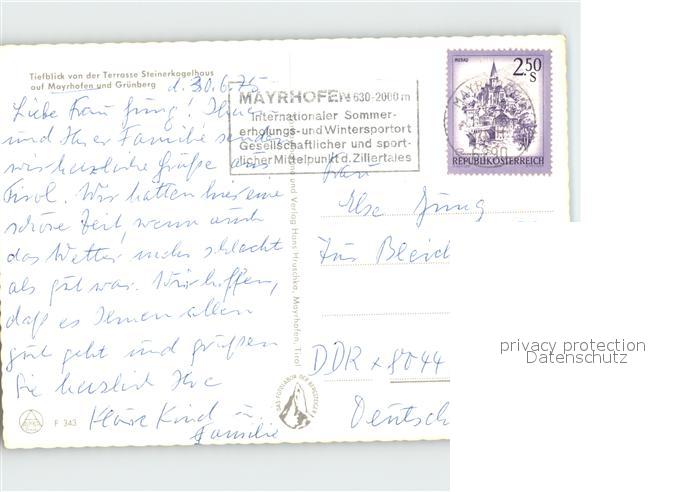 Tiefblick von der Terrasse Steinerkogelhaus
auf Mayrhofen und Grünberg
d. 30.6.75
Liebe Frau Jung! Ihnen
und Ihrer Familie senden
wir herzliche Grüße aus
Tirol. Wir hatten hier eine
schöne Zeit, wenn auch
das Wetter mehr schlecht
als gut war. Wir hoffen,
daß es Ihnen allen
gut geht und grüßen
Sie herzlich Ihre
Kläre Kind u.
Familie
F 343
MAYRHOFEN 630-2000m
Internationaler Sommer-
erholungs- und Wintersportort
Gesellschaftlicher und sport-
licher Mittelpunkt d. Zillertales
und Verlag Hans Hruschka, Mayrhofen, Tirol
MURAU
2.50
S
REPUBLIK ÖSTERREICH
MAYRHOFEN
6290
Frau
Else Jung
Zur Bleich
DDR x 8044
Deutsch
privacy protection
Datenschutz